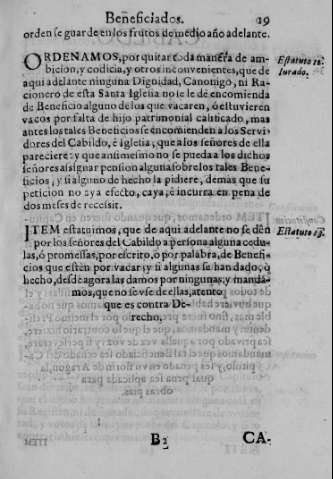 Beneficiados. 19
orden se guarde en los frutos de medio año adelante.
ORDENAMOS, por quitar toda manera de am-
bicion, y codicia, y otros inconvenientes, que de
aqui adelante ninguna Dignidad, Canonigo, ni Ra-
cionero de esta Santa Iglesia no le dè encomienda
de Beneficio alguno de los que vacaren, ò estuvieren
vacos por falta de hijo patrimonial calificado, mas
antes los tales Beneficios se encomienden a los Servi-
dores del Cabildo, è Iglesia, que a los señores de ella
pareciere: y que ansimesmo no se pueda a los dichos
señores assignar pension alguna sobre los tales Bene-
ficios, y si alguno de hecho la pidiere, demàs que su
peticion no aya efecto, caya, è incurra en pena de
dos meses de recessit.
Estatuto
Iurado.
ITEM estatuimos, que de aqui adelante no se dèn
por los señores del Cabildo a persona alguna cedu-
las, ò promessas, por escrito, ò por palabra, de Benefi-
cios que estèn por vacar: y si algunas se han dado, ò
hecho, desde agora las damos por ningunas, y manda-
mos, que no se vse de ellas, atento
que es contra De-
recho.
Estatuto
B2 CA-